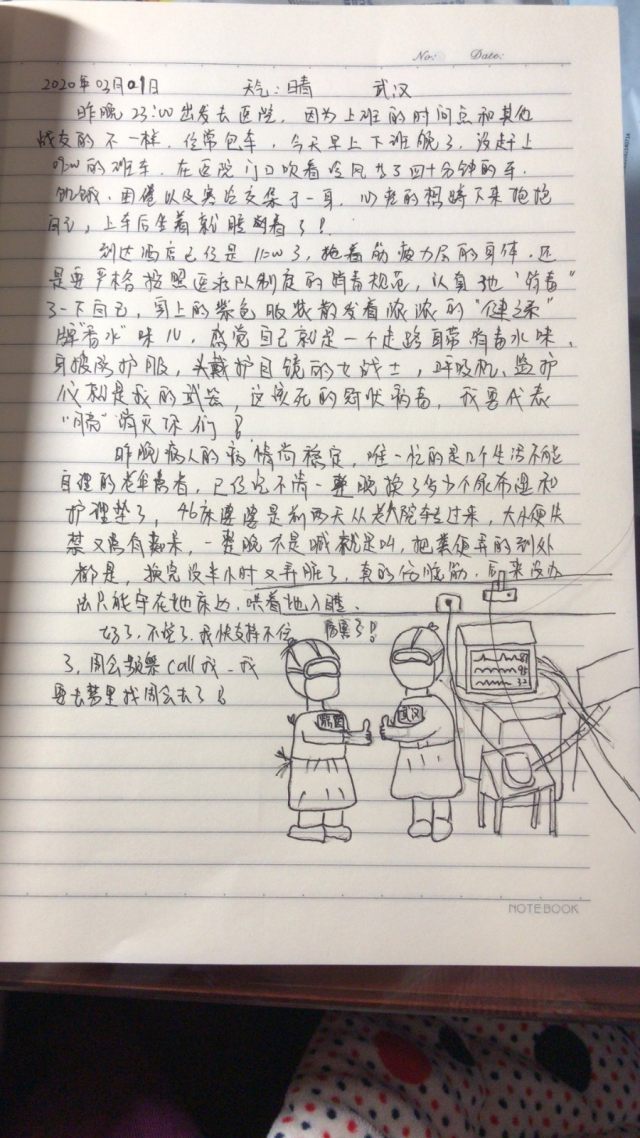 No: Date:
2020年03月01日 天气：晴 武汉
昨晚23:00出发去医院，因为上班的时间点和其他
战友的不一样，经常包车，今天早上下班晚了，没赶上
的班车，在医院门口吹着冷风等了四十分钟的车，
饥饿、困倦以及寒冷交集于一身，心疼的想蹲下来抱抱
自己，上车后坐着就睡着了！
到达酒店已经是11:00了，拖着筋疲力尽的身体，还
是要严格按照医疗队制定的消毒规范，认真地“消毒”
了一下自己，身上的紫色服装散发着浓浓的“健之素”
牌“香水”味儿，感觉自己就是一个走路自带消毒水味，
身披防护服，头戴护目镜的女战士，呼吸机、监护
仪就是我的武器，这该死的冠状病毒，我要代表
“月亮”消灭你们！
昨晚病人的病情尚稳定，唯一忙的是几个生活不能
自理的老年患者，已经记不清一整晚换了多少个尿布湿和
护理垫了，46床婆婆是前两天从老人院转过来，大小便失
禁又患有痴呆，一整晚不是喊就是叫，把粪便弄的到处
都是，换完没半小时又弄脏了，真的伤脑筋，后来没办
法只能守在她床边，哄着她入睡，
好了，不说了，我快支持不住
了，周公频繁call我，我
要去梦里找周公去了！
武汉
NOTEBOOK